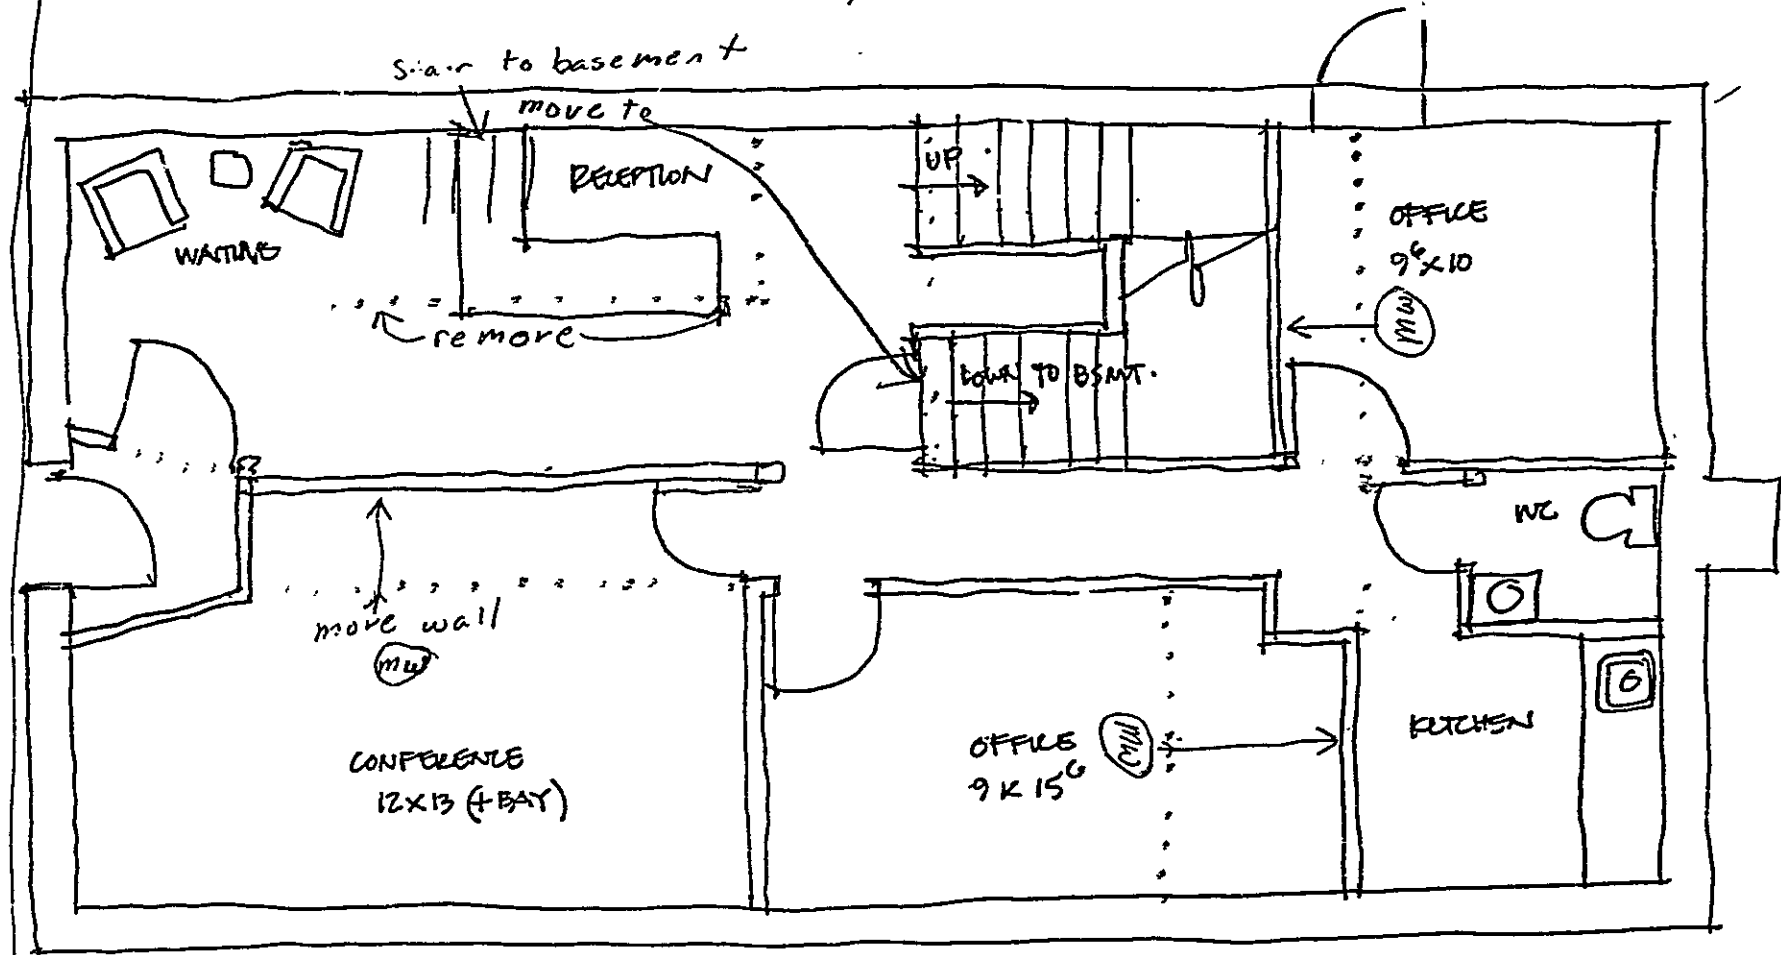 stair to basement
move to
UP
RECEPTION
WAITING
OFFICE
9⁶ x 10
MW
remove
DOWN TO BSMT.
WC
move wall
MW
CONFERENCE
12 x 13 (+ BAY)
OFFICE
9 x 15⁶
MW
KITCHEN